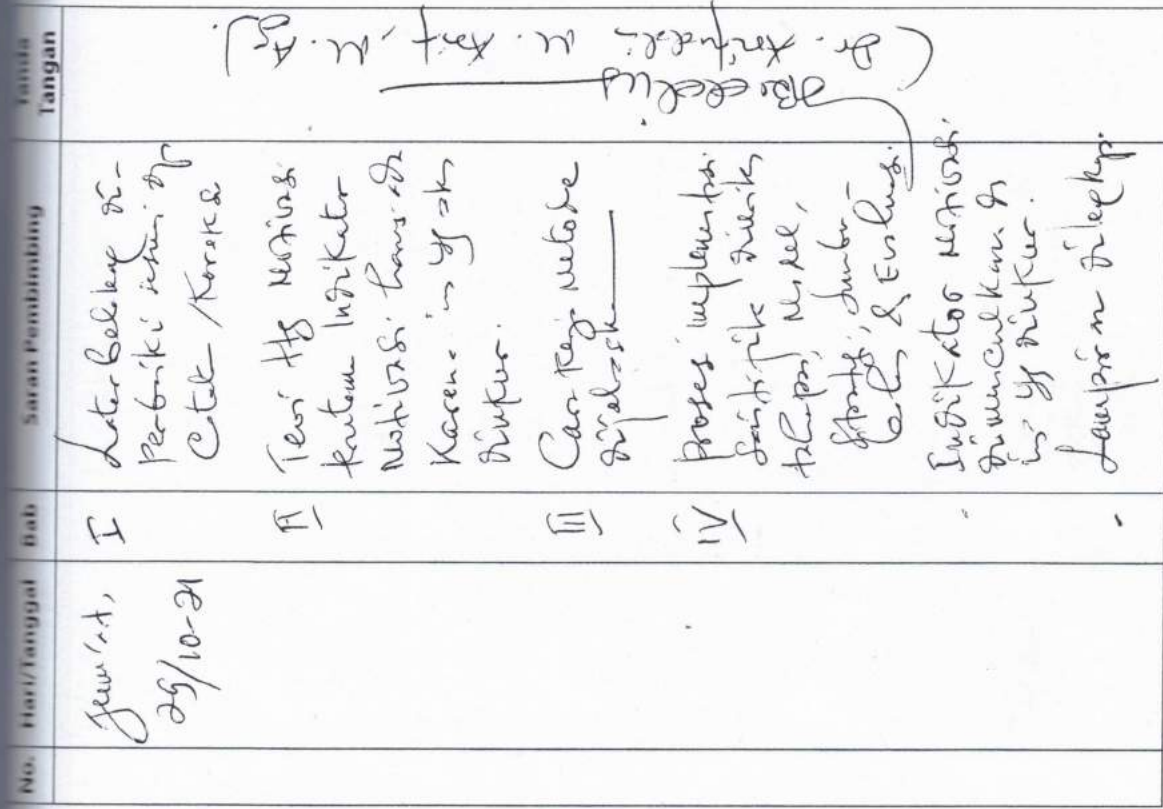 No. Hari/Tanggal Bab Saran Pembimbing Tanda Tangan
Jum'at,
29/10-21
I
Latar Belakang di-
perbaiki sesuai dg
Catat /Koreksi
II
Teori ttg Motivasi
terutama Indikator
Motivasi harus ada
Karena in yg ak
diukur.
III
Cara Kerja Metode
dijelask
IV
Proses implementasi
Saintifik dirinik,
tahapan, Model,
Strategi, Sumber
& Evaluasi.
Indikator Motivasi
dimunculkan di
in yg diukur.
- Lampiran dilengkapi.
(Dr. M. Arif, M. Ag).